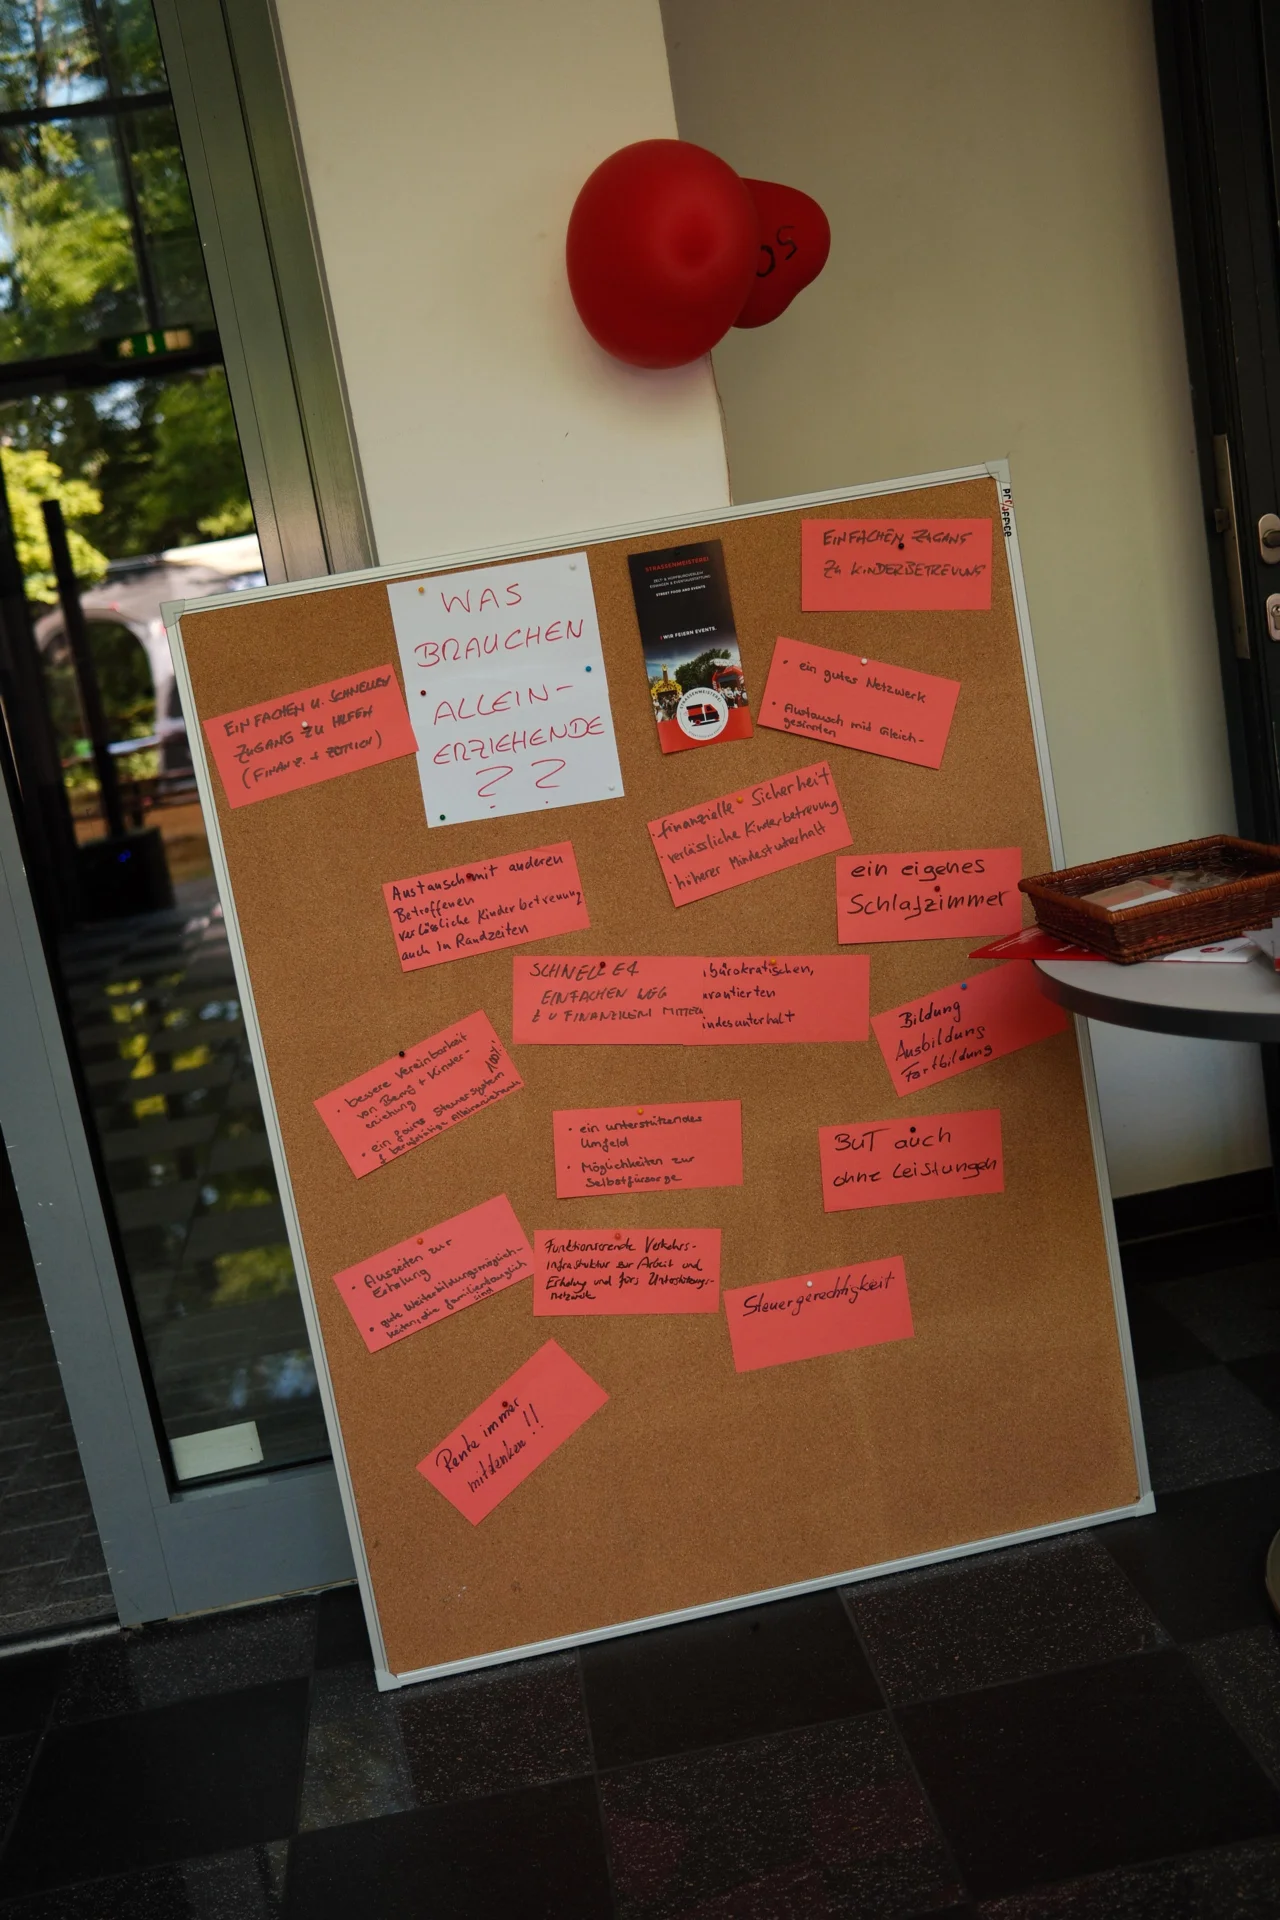 SO
PRO/OFFICE
WAS
BRAUCHEN
ALLEIN-
ERZIEHENDE
??
STRASSENMEISTEREI
STREET FOOD AND EVENTS
WIR FEIERN EVENTS.
EINFACHEN ZUGANG
ZU KINDERBETREUUNG
EINFACHEN U. SCHNELLEN
ZUGANG ZU HILFEN
(FINANZ. +
• ein gutes Netzwerk
• Austausch mit Gleich-
gesinnten
· finanzielle Sicherheit
· verlässliche Kinderbetreuung
· höherer Mindestunterhalt
Austausch mit anderen
Betroffenen
verlässliche Kinderbetreuung
auch in Randzeiten
ein eigenes
Schlafzimmer
SCHNELLE
EINFACHEN WEG
ZU FINANZIELLEN MITTELN
bürokratischen,
arantierten
indesunterhalt
Bildung
Ausbildung
Fortbildung
• bessere Vereinbarkeit
von Beruf + Kinder-
erziehung
• ein faires Steuersystem
f. berufstätige Alleinerziehende
• ein unterstützendes
Umfeld
• Möglichkeiten zur
Selbstfürsorge
BuT auch
ohne Leistungen
• Auszeiten zur
Erholung
• gute Weiterbildungsmöglich-
keiten, die familientauglich
sind
Funktionierende Verkehrs-
infrastruktur zur Arbeit und
Erholung und fürs Unterstützungs-
netzwerk
Steuergerechtigkeit
Rente immer
mitdenken!!